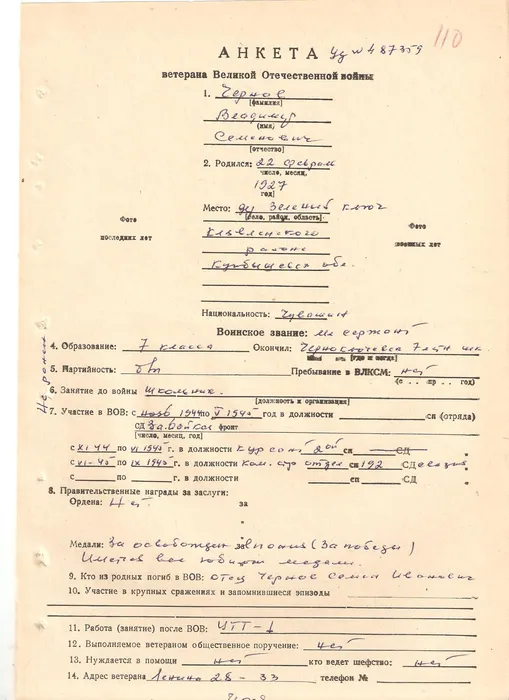 110
АНКЕТА уд № 487359
ветерана Великой Отечественной войны
1. Чернов
(фамилия)
Владимир
(имя)
Семенович
(отчество)
2. Родился: 22 февраля
число, месяц,
1927
год)
Место: Зеленый ключ
(село, район, область)
Клявлинского
района
Куйбышевск обл.
Фото
последних лет
Фото
военных лет
Национальность: Чуваш
Воинское звание: мл сержант
4. Образование: 7 класса Окончил:
(где и когда)
5. Партийность: б/п Пребывание в ВЛКСМ: нет
(с . . пр . . год)
6. Занятие до войны школьник.
(должность и организация)
7. Участие в ВОВ: с нояб 1944 по V 1945 год в должности сп (отряда)
СД фронт
(число, месяц, год)
с XI-44 по VI 1945 г. в должности курсант сп СД
с VI-45 по IX 1945 г. в должности Ком. отдел сп 192 СД
с по г. в должности сп СД
8. Правительственные награды за заслуги:
Ордена: Нет за
"
Медали: За (За победы)
все медали.
9. Кто из родных погиб в ВОВ: отец Чернов Семен Иванович
10. Участие в крупных сражениях и запомнившиеся эпизоды
11. Работа (занятие) после ВОВ: УТТ-1
12. Выполняемое ветераном общественное поручение: нет
13. Нуждается в помощи нет кто ведет шефство: нет
14. Адрес ветерана Ленина 28 - 33 телефон №